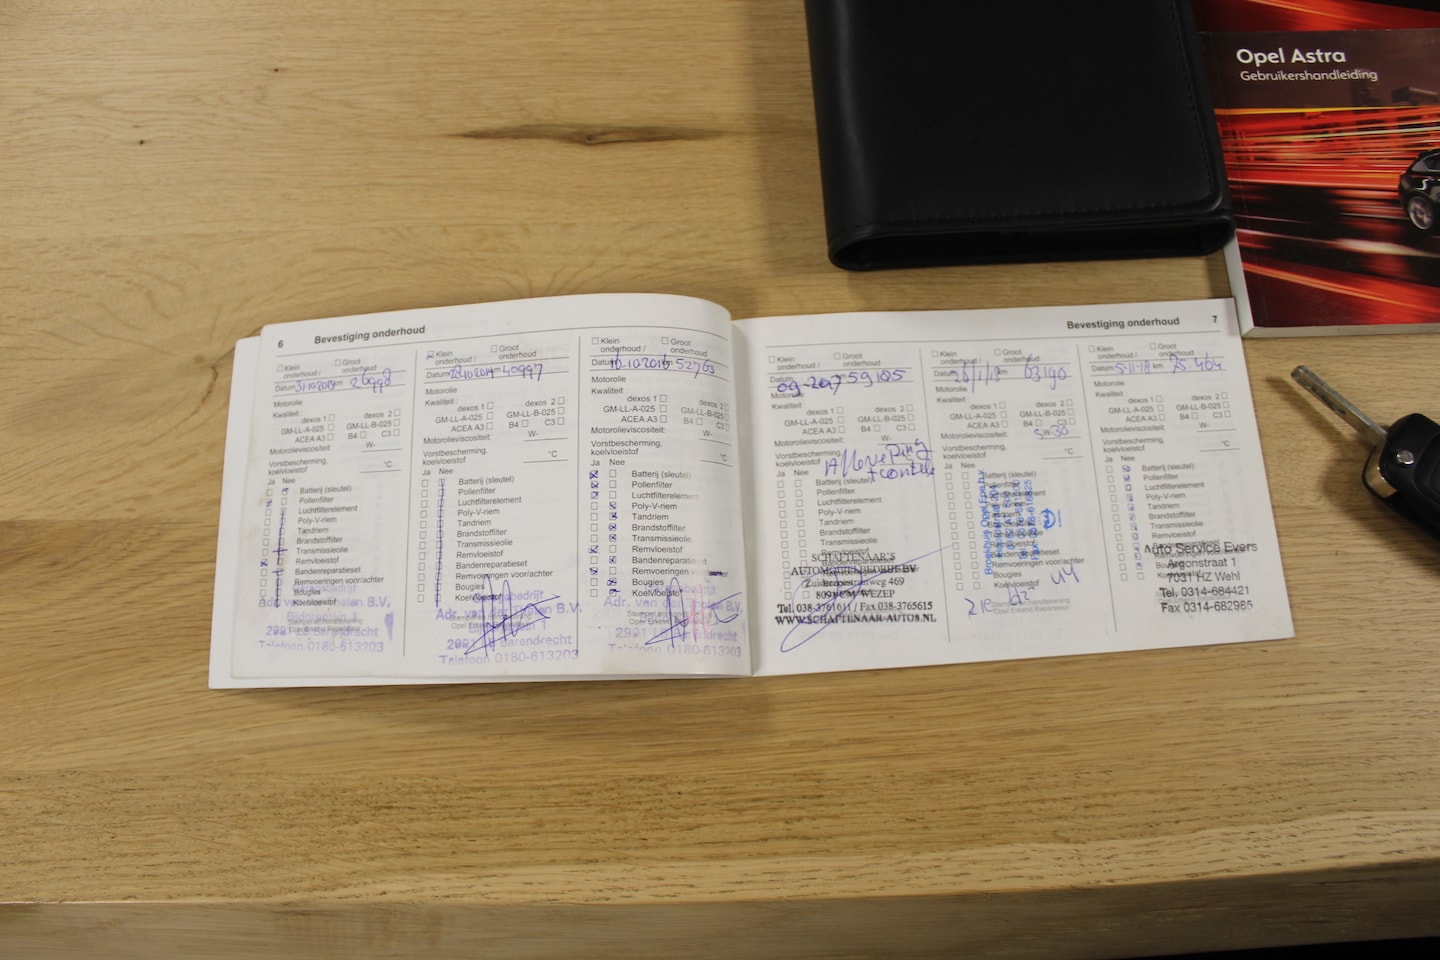 Opel Astra
Gebruikershandleiding
6 Bevestiging onderhoud
Klein onderhoud / Groot onderhoud
Datum 31 10 2013 km 26998
Motorolie
Kwaliteit :
dexos 1 dexos 2
GM-LL-A-025 GM-LL-B-025
ACEA A3 B4 C3
Motorolieviscositeit: W-
Vorstbescherming, koelvloeistof °C
Ja Nee
Batterij (sleutel)
Pollenfilter
Luchtfilterelement
Poly-V-riem
Tandriem
Brandstoffilter
Transmissieolie
Remvloeistof
Bandenreparatieset
Remvoeringen voor/achter
Bougies
Koelvloeistof
2991 Barendrecht
Telefoon 0180-613203
Klein onderhoud / Groot onderhoud
Datum 28 10 2014 km 40997
Motorolie
Kwaliteit :
dexos 1 dexos 2
GM-LL-A-025 GM-LL-B-025
ACEA A3 B4 C3
Motorolieviscositeit: W-
Vorstbescherming, koelvloeistof °C
Ja Nee
Batterij (sleutel)
Pollenfilter
Luchtfilterelement
Poly-V-riem
Tandriem
Brandstoffilter
Transmissieolie
Remvloeistof
Bandenreparatieset
Remvoeringen voor/achter
Bougies
Koelvloeistof
Adr. van der B.V.
2991 Barendrecht
Telefoon 0180-613203
Klein onderhoud / Groot onderhoud
Datum 52763
Motorolie
Kwaliteit :
dexos 1 dexos 2
GM-LL-A-025 GM-LL-B-025
ACEA A3 B4 C3
Motorolieviscositeit: W-
Vorstbescherming, koelvloeistof °C
Ja Nee
Batterij (sleutel)
Pollenfilter
Luchtfilterelement
Poly-V-riem
Tandriem
Brandstoffilter
Transmissieolie
Remvloeistof
Bandenreparatieset
Remvoeringen
Bougies
Koelvloeistof
Adr. van der B.V.
2991 Barendrecht
Telefoon 0180-613203
Bevestiging onderhoud 7
Klein onderhoud / Groot onderhoud
Datum 59185
Motorolie
Kwaliteit :
dexos 1 dexos 2
GM-LL-A-025 GM-LL-B-025
ACEA A3 B4 C3
Motorolieviscositeit: W-
Vorstbescherming, koelvloeistof
Aflevering
+ controle
Ja Nee
Batterij (sleutel)
Pollenfilter
Luchtfilterelement
Poly-V-riem
Tandriem
Brandstoffilter
Transmissieolie
Remvloeistof
SCHAFTENAAR'S
AUTOMOBIELBEDRIJF BV
Zuiderzeestraatweg 469
WEZEP
Tel. 038-3761611 / Fax 038-3765615
WWW.SCHAFTENAAR-AUTOS.NL
Klein onderhoud / Groot onderhoud
Datum 26/1/18 km 63190
Motorolie
Kwaliteit :
dexos 1 dexos 2
GM-LL-A-025 GM-LL-B-025
ACEA A3 B4 C3
Motorolieviscositeit: 5W-30
Vorstbescherming, koelvloeistof °C
Ja Nee
Batterij (sleutel)
Pollenfilter
Luchtfilterelement
Poly-V-riem
Tandriem
Brandstoffilter
Transmissieolie
Remvloeistof
Bandenreparatieset
Remvoeringen voor/achter
Bougies
Koelvloeistof
zie
Klein onderhoud / Groot onderhoud
Datum 5-11-18 km 75.464
Motorolie
Kwaliteit :
dexos 1 dexos 2
GM-LL-A-025 GM-LL-B-025
ACEA A3 B4 C3
Motorolieviscositeit: W-
Vorstbescherming, koelvloeistof °C
Ja Nee
Batterij (sleutel)
Pollenfilter
Luchtfilterelement
Poly-V-riem
Tandriem
Brandstoffilter
Transmissieolie
Remvloeistof
Auto Service Evers
Argonstraat 1
7031 HZ Wehl
Tel. 0314-684421
Fax 0314-682985